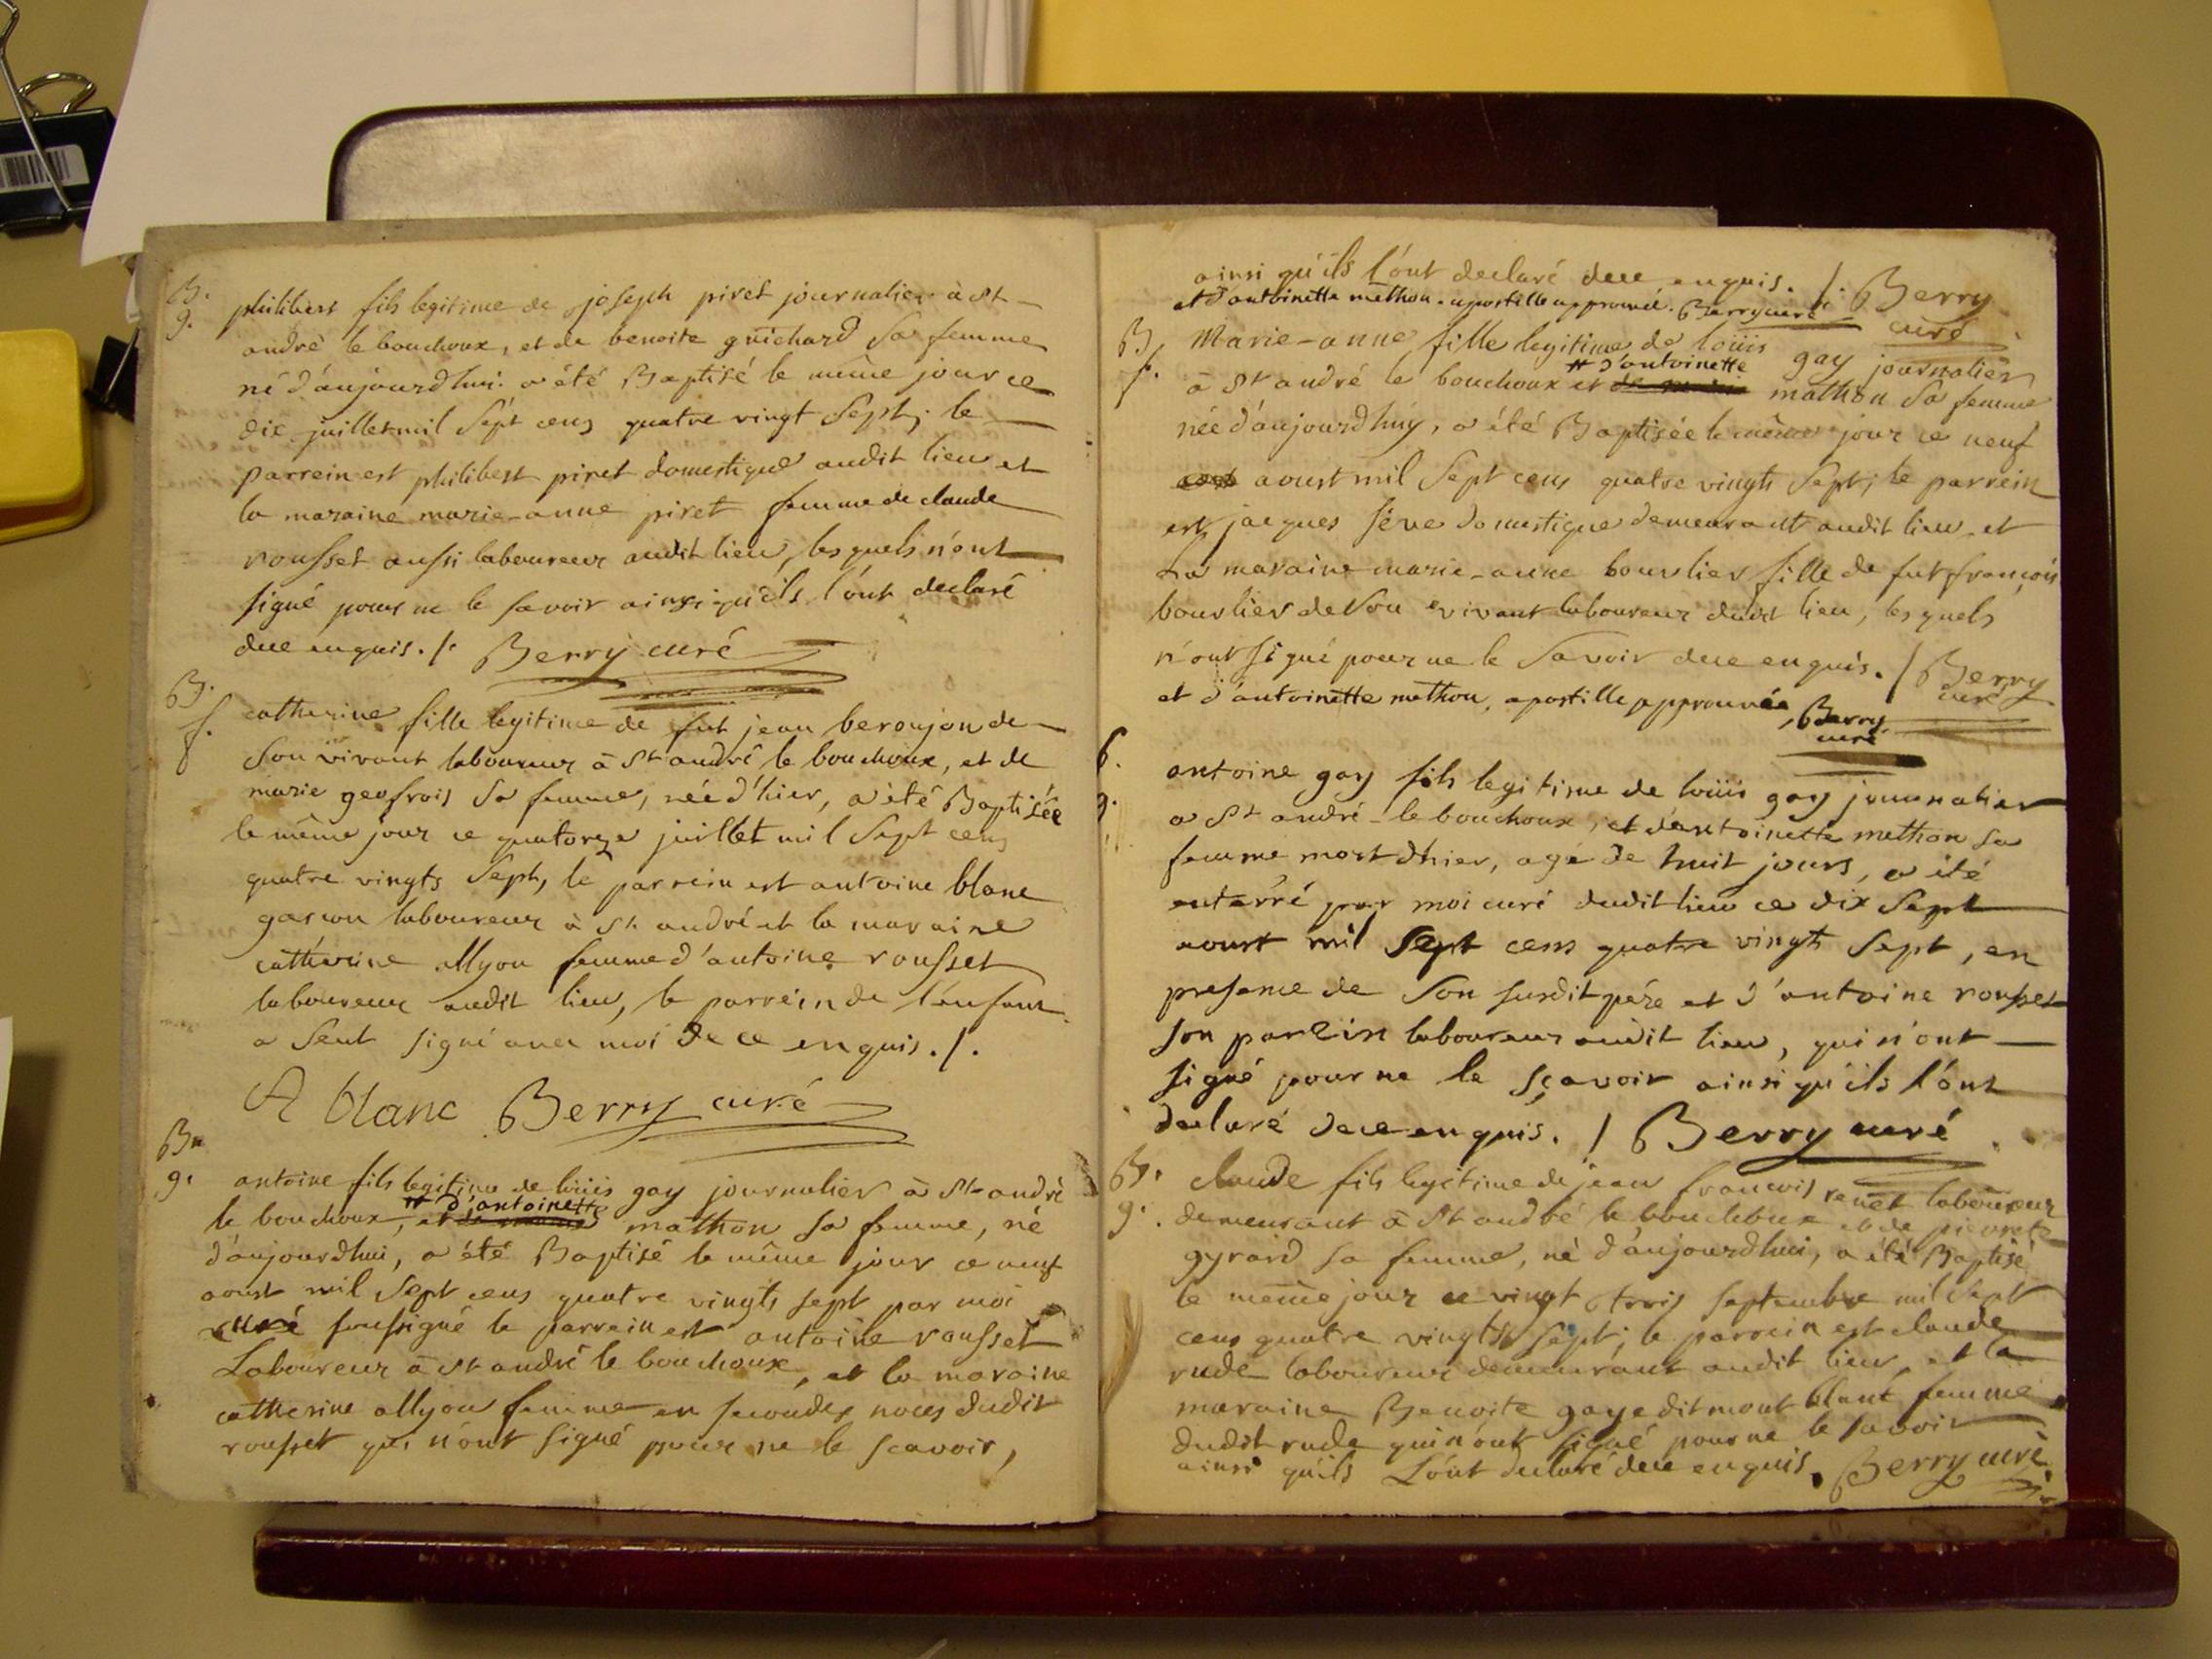 B.
g.
philibert fils legitime de joseph piret journalier à st
andré le bouchoux, et de benoite guichard sa femme
né d'aujourdhui a été Baptisé le même jour ce
dix juillet mil sept cens quatre vingt sept; le
parrein est philibert piret domestique audit lieu et
la maraine marie-anne piret femme de claude
rousset aussi laboureur audit lieu, lesquels n'ont
signé pour ne le savoir ainsi qu'ils l'ont declaré
de ce enquis. /. Berry curé
B.
f.
catherine fille legitime de fut jean beroujon de
son vivant laboureur à st andré le bouchoux, et de
marie geofrois sa femme, née d'hier, a été Baptisée
le même jour ce quatorze juillet mil sept cens
quatre vingts sept, le parrein est antoine blanc
garcon laboureur à st. andré et la maraine
catherine allyon femme d'antoine rousset
laboureur audit lieu, le parrein de l'enfant
a seul signé avec moi de ce enquis. /.
A blanc Berry curé
B.
g.
antoine fils legitime de loüis gay journalier à st andré
# d'antoinette
le bouchoux, et mathon sa femme, né
d'aujourdhui, a été Baptisé le même jour ce neuf
aoust mil sept cens quatre vingts sept par moi
curé soussigné le parrein est antoine rousset
Laboureur à st andré le bouchoux, et la maraine
catherine allyon femme en secondes noces dudit
rousset qui n'ont signé pour ne le scavoir,
ainsi qu'ils l'ont declaré de ce enquis. /. Berry
curé
et d'antoinette methon. apostille approuvée. Berry curé
B.
f.
Marie-anne fille legitime de loüis gay journalier
# d'antoinette
à st andré le bouchoux et mathon sa femme
née d'aujourdhuy, a été Baptisée le même jour ce neuf
aoust mil sept cens quatre vingts sept; le parrein
est jacques séve domestique demeurant audit lieu, et
La maraine marie-anne bourlier fille de fut françois
bourlier de son vivant laboureur dudit lieu, lesquels
n'ont signé pour ne le savoir de ce enquis. / Berry
curé
et d'antoinette methon, apostille approuvée, Berry
curé
g.
antoine gay fils legitime de loüis gay journalier
a st andré-le bouchoux, et d'antoinette methon sa
femme mort dhier, agé de huit jours, a été
enterré par moi curé dudit lieu ce dix sept
aoust mil sept cens quatre vingts sept, en
presence de son susdit pére et d'antoine rousset
son parrein laboureur audit lieu, qui n'ont
signé pour ne le sçavoir ainsi qu'ils l'ont
declaré de ce enquis. / Berry curé
B.
g.
claude fils legitime de jean francois renet laboureur
demeurant à st andré le bouchoux et de pierrete
gyrard sa femme, né d'aujourdhui, a été Baptisé
le même jour ce vingt trois septembre mil sept
cens quatre vingts sept; le parrein est claude
rude laboureur demeurant audit lieu, et la
maraine Benoite gaye dit mont blant femme
dudit rude qui n'ont signé pour ne le savoir
ainsi qu'ils L'ont declaré de ce enquis. Berry curé